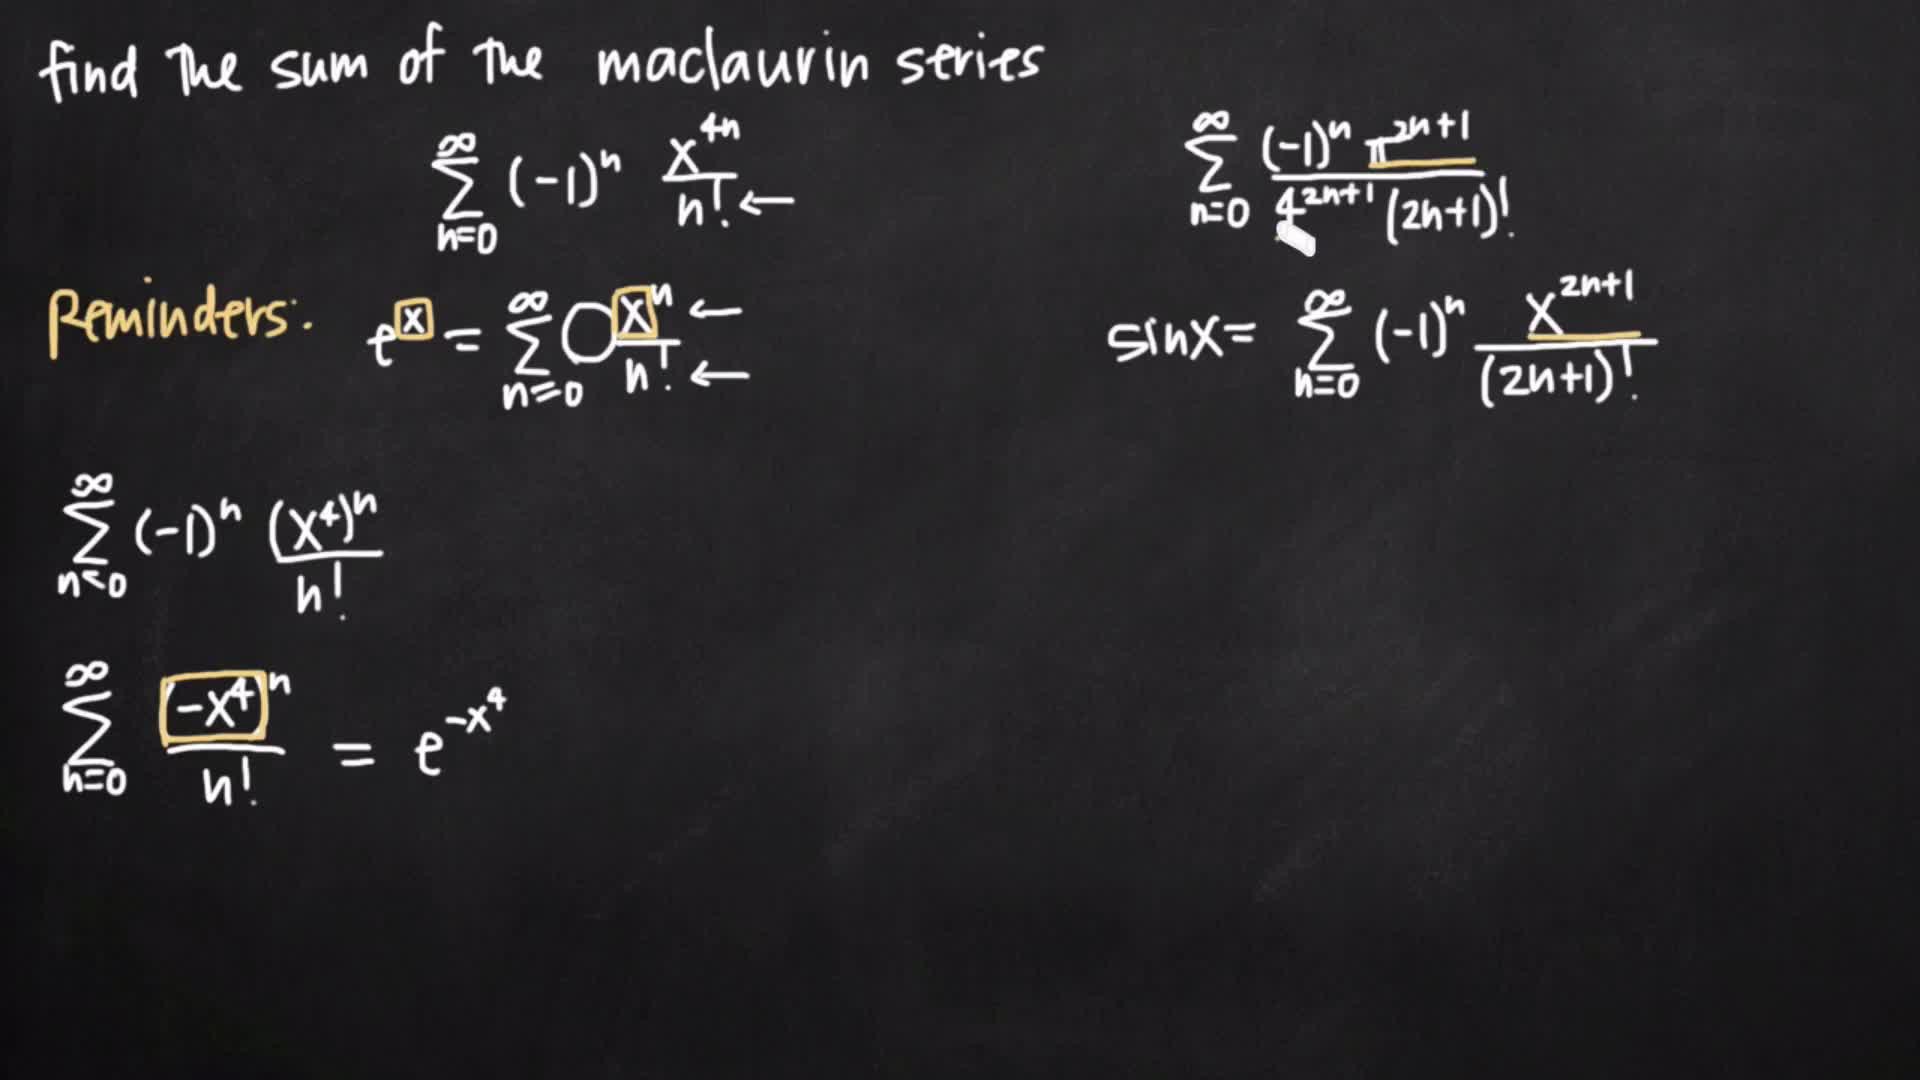 find the sum of the maclaurin series
∑_{n=0}^{∞} (-1)^n x^{4n}/n! ←
∑_{n=0}^{∞} (-1)^n π^{2n+1}/(4^{2n+1} (2n+1)!)
Reminders: e^x = ∑_{n=0}^{∞} x^n/n! ← ←
sinx = ∑_{n=0}^{∞} (-1)^n x^{2n+1}/(2n+1)!
∑_{n=0}^{∞} (-1)^n (x^4)^n/n!
∑_{n=0}^{∞} (-x^4)^n/n! = e^{-x^4}